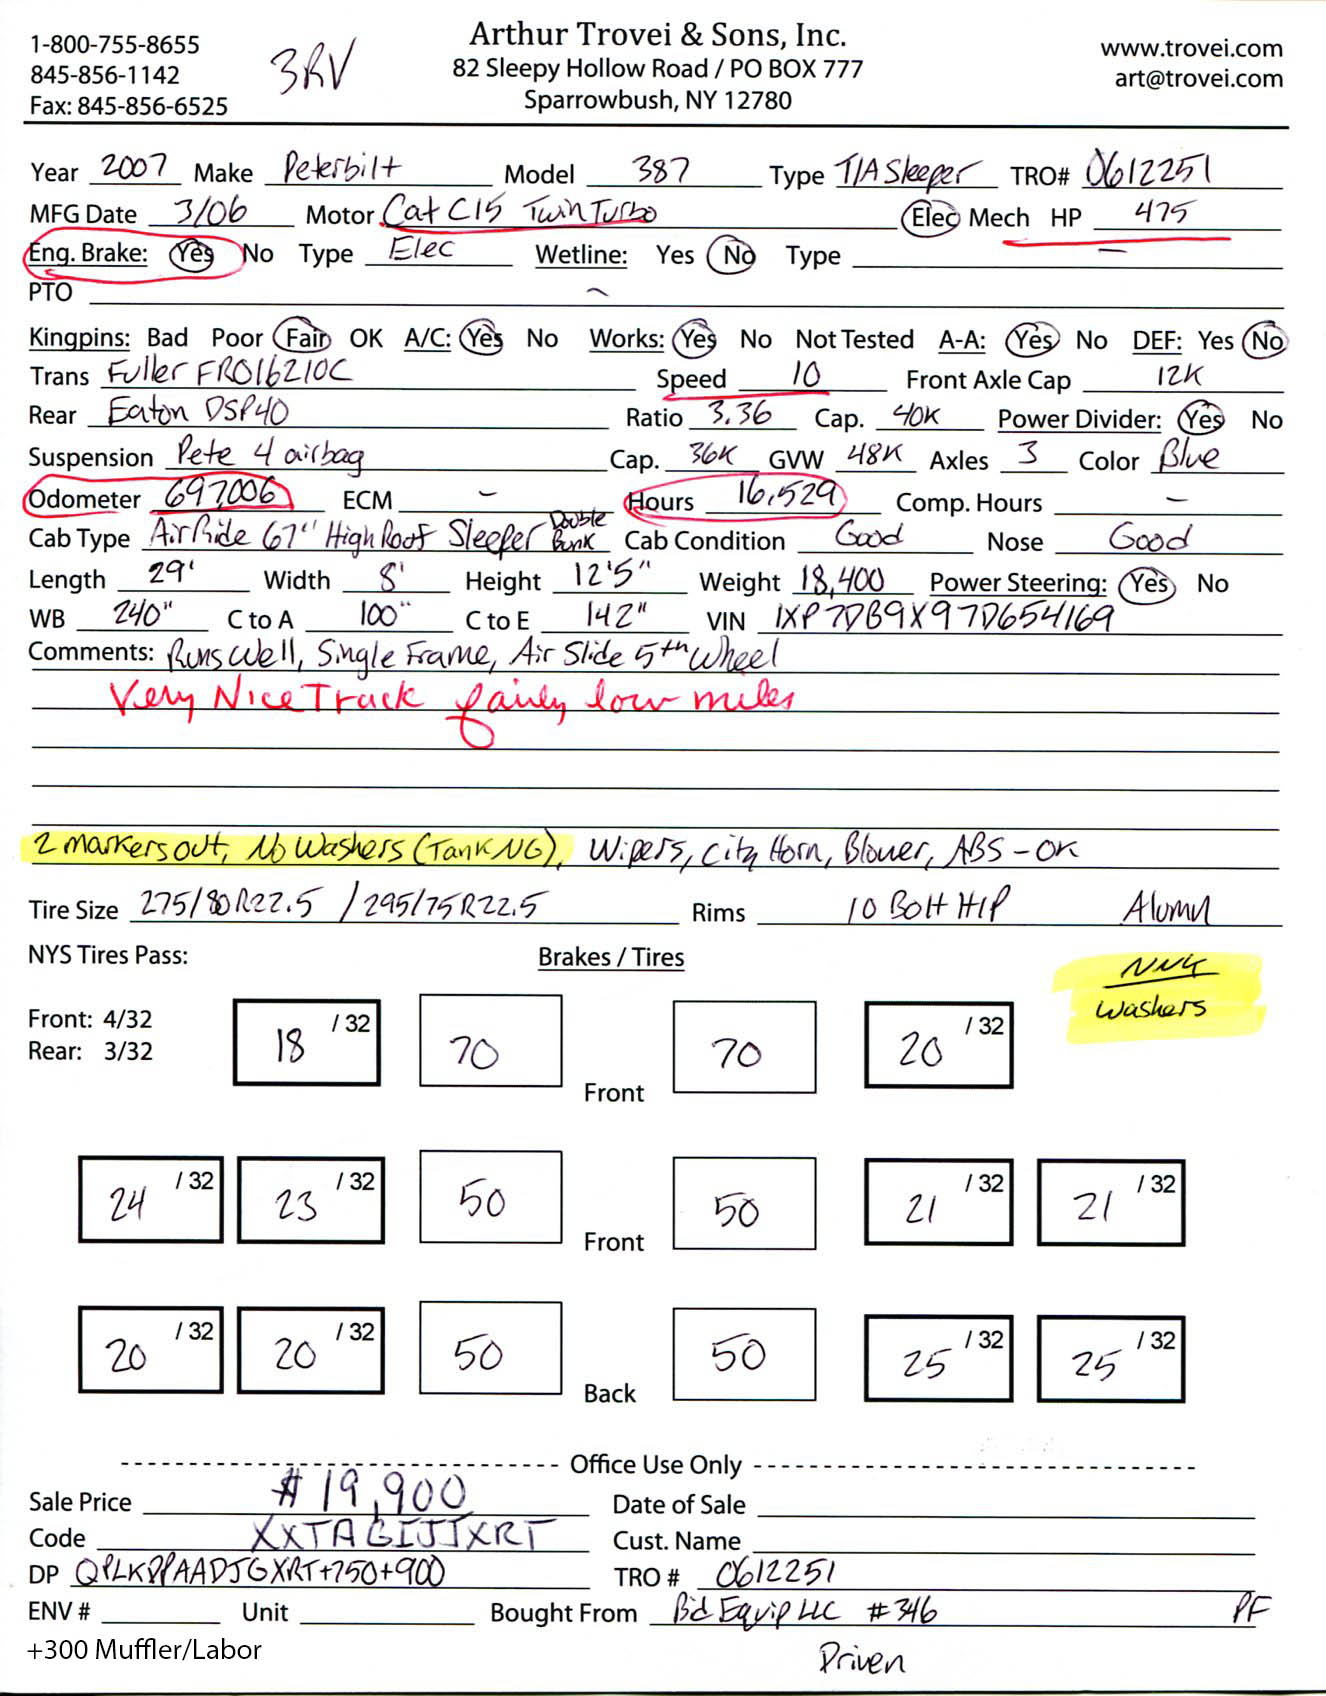 Arthur Trovei & Sons, Inc.
1-800-755-8655
845-856-1142
Fax: 845-856-6525
3RV
82 Sleepy Hollow Road / PO BOX 777
Sparrowbush, NY 12780
www.trovei.com
art@trovei.com
Year 2007 Make Peterbilt Model 387 Type T/A Sleeper TRO# 0612251
MFG Date 3/06 Motor Cat C15 Twin Turbo Elec Mech HP 475
Eng. Brake: Yes No Type Elec Wetline: Yes No Type —
PTO ~
Kingpins: Bad Poor Fair OK A/C: Yes No Works: Yes No Not Tested A-A: Yes No DEF: Yes No
Trans Fuller FRO16210C Speed 10 Front Axle Cap 12K
Rear Eaton DSP40 Ratio 3.36 Cap. 40K Power Divider: Yes No
Suspension Pete 4 airbag Cap. 36K GVW 48K Axles 3 Color Blue
Odometer 697006 ECM - Hours 16,529 Comp. Hours -
Cab Type AirRide 67" High Roof Sleeper Double Bunk Cab Condition Good Nose Good
Length 29' Width 8' Height 12'5" Weight 18,400 Power Steering: Yes No
WB 240" C to A 100" C to E 142" VIN 1XP7DB9X97D654169
Comments: Runs Well, Single Frame, Air Slide 5th Wheel
Very Nice Truck fairly low miles
2 markers out, No Washers (Tank NG), Wipers, City Horn, Blower, ABS - OK
Tire Size 275/80R22.5 / 295/75R22.5 Rims 10 Bolt HP Alumn
NYS Tires Pass: Brakes / Tires
Washers
Front: 4/32
Rear: 3/32
18 /32 70 Front 70 20 /32
24 /32 23 /32 50 Front 50 21 /32 21 /32
20 /32 20 /32 50 Back 50 25 /32 25 /32
Office Use Only
Sale Price $19,900 Date of Sale
Code XXTAGIJJXRT Cust. Name
DP QPLKPPAADJGXRT+750+900 TRO # 0612251
ENV # Unit Bought From Bid Equip LLC #346 PF
+300 Muffler/Labor
Driven